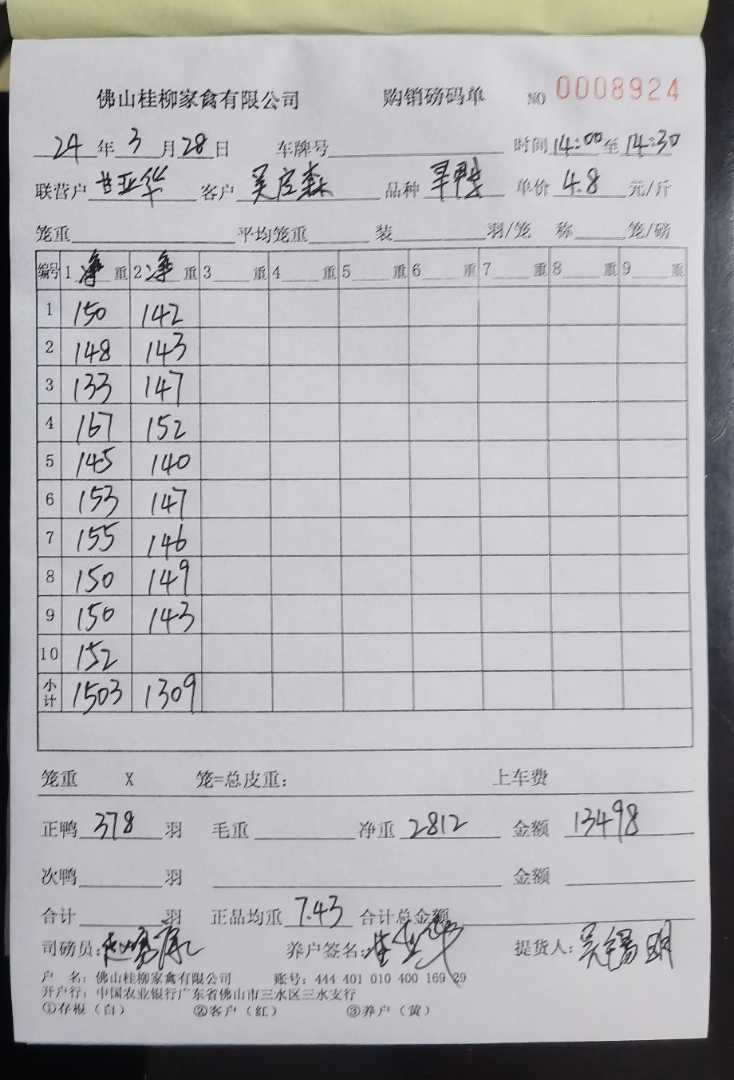 佛山桂柳家禽有限公司 购销磅码单 NO 0008924
24 年 3 月 28 日 车牌号 时间 14:00 至 14:30
联营户 甘亚华 客户 吴启森 品种 单价 4.8 元/斤
笼重 平均笼重 装 羽/笼 称 笼/磅
编号 1 净 重 2 净 重 3 重 4 重 5 重 6 重 7 重 8 重 9 重
1 150 142
2 148 143
3 133 147
4 167 152
5 145 140
6 153 147
7 155 146
8 150 149
9 150 143
10 152
小计 1503 1309
笼重 X 笼=总皮重: 上车费
正鸭 378 羽 毛重 净重 2812 金额 13498
次鸭 羽 金额
合计 羽 正品均重 7.43 合计总金额
司磅员: 养户签名: 提货人: 吴锡明
户 名: 佛山桂柳家禽有限公司 账号: 444 401 010 400 169 29
开户行: 中国农业银行广东省佛山市三水区三水支行
①存根(白) ②客户(红) ③养户(黄)